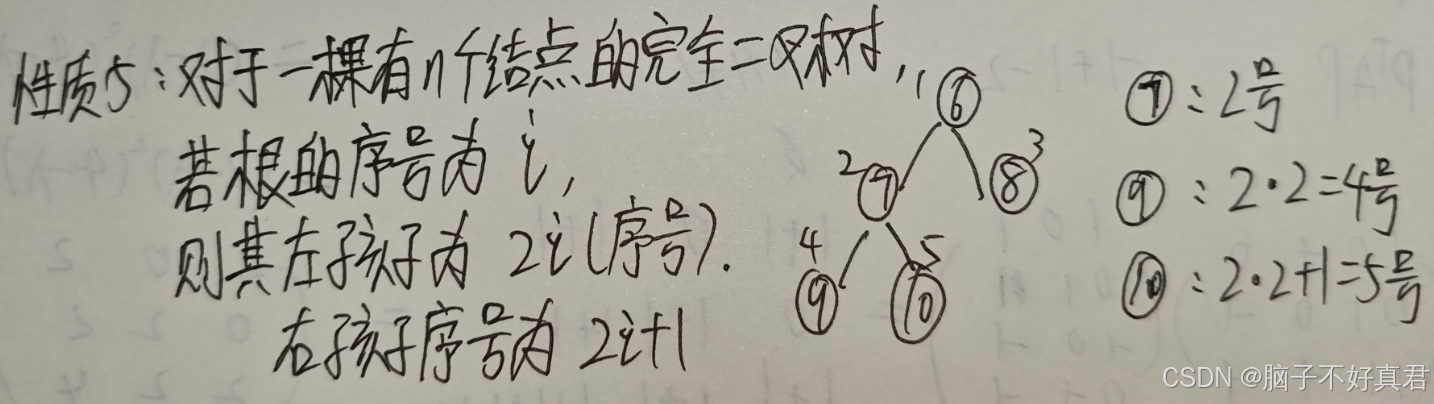 性质5：对于一棵有n个结点的完全二叉树，
若根的序号为 i，
则其左孩子为 2i(序号).
右孩子序号为 2i+1
1 ⑥
2 ⑦ ⑧ 3
4 5
⑨ ⑩
⑦：2号
⑨：2·2=4号
⑩：2·2+1=5号
CSDN @脑子不好真君